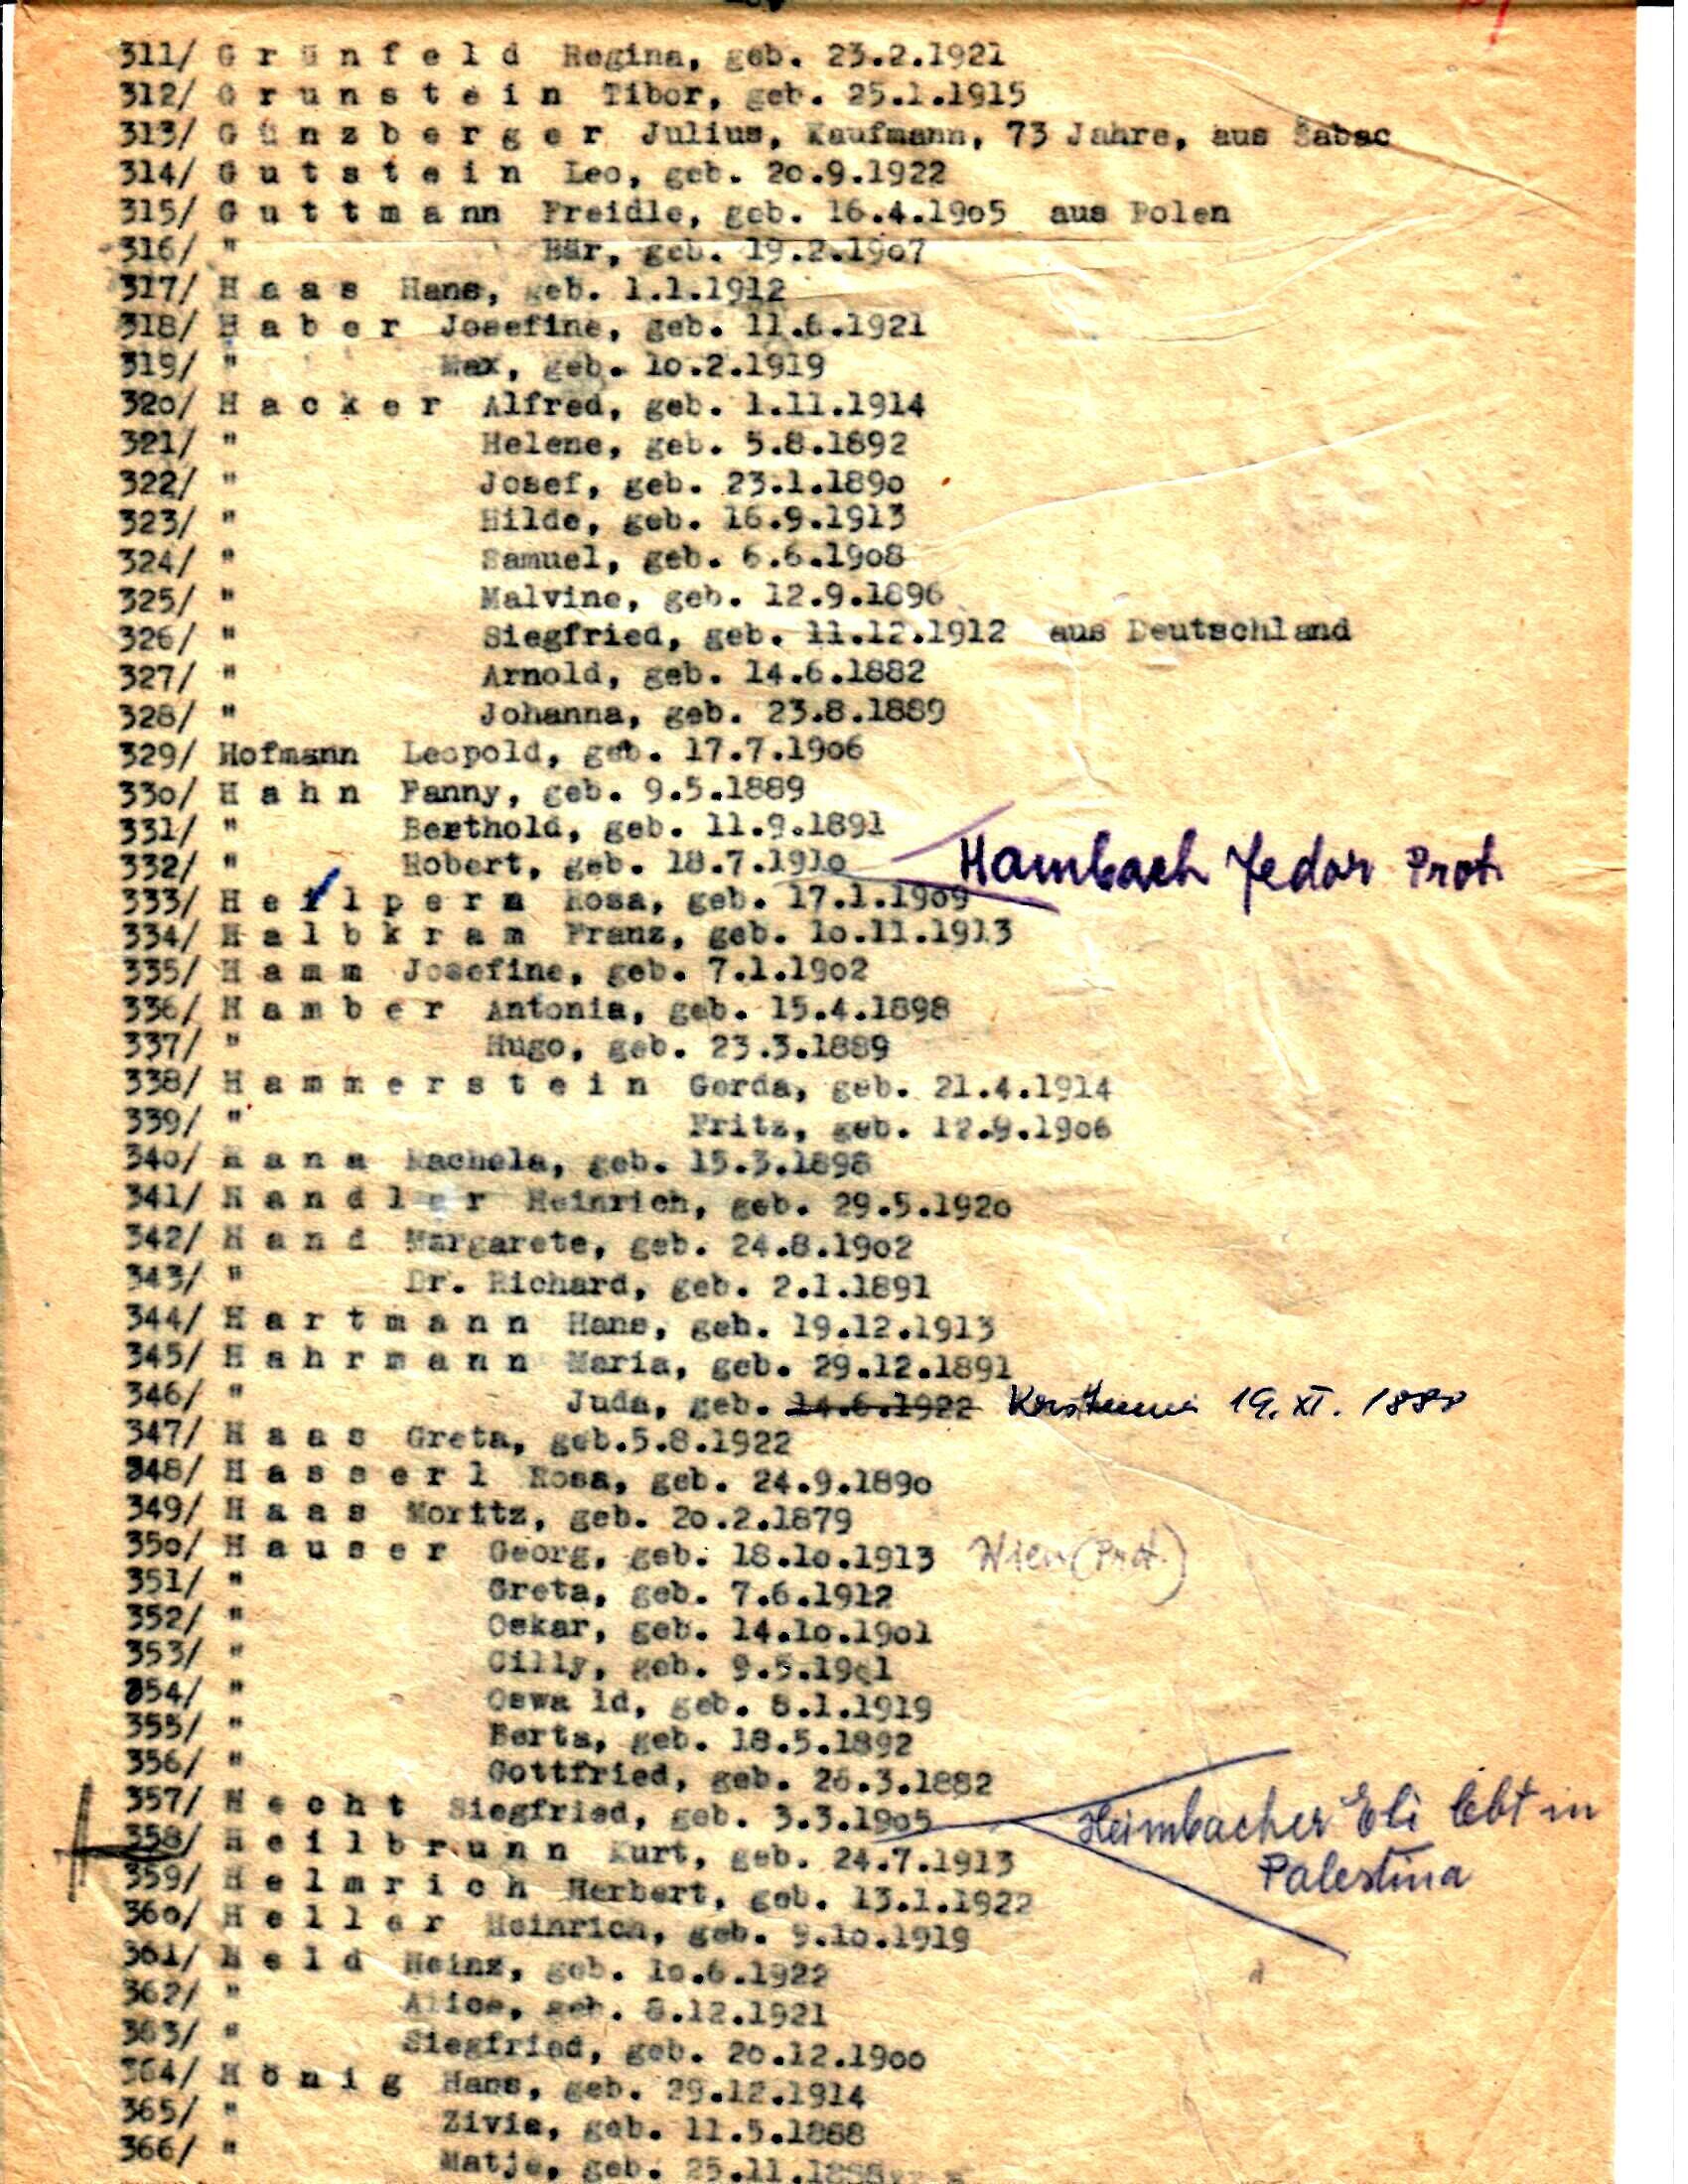 311/ G r ü n f e l d Regina, geb. 23.2.1921
312/ G r u n s t e i n Tibor, geb. 25.1.1915
313/ G ü n z b e r g e r Julius, Kaufmann, 73 Jahre, aus Sabac
314/ G u t s t e i n Leo, geb. 20.9.1922
315/ G u t t m a n n Freidle, geb. 16.4.19o5 aus Polen
316/ " Bär, geb. 19.2.19o7
317/ H a a s Hans, geb. 1.1.1912
318/ H a b e r Josefine, geb. 11.6.1921
319/ " Max, geb. 1o.2.1919
32o/ H a c k e r Alfred, geb. 1.11.1914
321/ " Helene, geb. 5.8.1892
322/ " Josef, geb. 23.1.189o
323/ " Hilde, geb. 16.9.1913
324/ " Samuel, geb. 6.6.19o8
325/ " Malvine, geb. 12.9.1896
326/ " Siegfried, geb. 11.12.1912 aus Deutschland
327/ " Arnold, geb. 14.6.1882
328/ " Johanna, geb. 23.8.1889
329/ Hofmann Leopold, geb. 17.7.19o6
33o/ H a h n Fanny, geb. 9.5.1889
331/ " Berthold, geb. 11.9.1891
332/ " Robert, geb. 18.7.191o
Hambach Fedor Prot.
333/ H e i l p e r n Rosa, geb. 17.1.19o9
334/ H a l b k r a m Franz, geb. 1o.11.1913
335/ H a m m Josefine, geb. 7.1.19o2
336/ H a m b e r Antonia, geb. 15.4.1898
337/ " Hugo, geb. 23.3.1889
338/ H a m m e r s t e i n Gerda, geb. 21.4.1914
339/ " Fritz, geb. 12.9.19o6
34o/ H a n a Rachela, geb. 15.3.1898
341/ H a n d l e r Heinrich, geb. 29.5.192o
342/ H a n d Margarete, geb. 24.8.19o2
343/ " Dr. Richard, geb. 2.1.1891
344/ H a r t m a n n Hans, geb. 19.12.1913
345/ H a h r m a n n Maria, geb. 29.12.1891
346/ " Juda, geb. 14.6.1922 19. XI. 1888
347/ H a a s Greta, geb.5.8.1922
348/ H a s s e r l Rosa, geb. 24.9.189o
349/ H a a s Moritz, geb. 2o.2.1879
35o/ H a u s e r Georg, geb. 18.1o.1913 Wien (Prot.)
351/ " Greta, geb. 7.6.1912
352/ " Oskar, geb. 14.1o.19o1
353/ " Cilly, geb. 9.5.19
354/ " Oswa ld, geb. 8.1.1919
355/ " Berta, geb. 18.5.1892
356/ " Gottfried, geb. 26.3.1882
357/ H e c h t Siegfried, geb. 3.3.19o5
Heimbacher Eli lebt in
Palestina
358/ H e i l b r u n n Kurt, geb. 24.7.1913
359/ H e l m r i c h Herbert, geb. 13.1.1922
36o/ H e l l e r Heinrich, geb. 9.1o.1919
361/ H e l d Heinz, geb. 1o.6.1922
362/ " Alice, geb. 8.12.1921
363/ " Siegfried, geb. 2o.12.19oo
364/ H ö n i g Hans, geb. 29.12.1914
365/ " Zivia, geb. 11.5.1888
366/ " Matje, geb. 25.11.